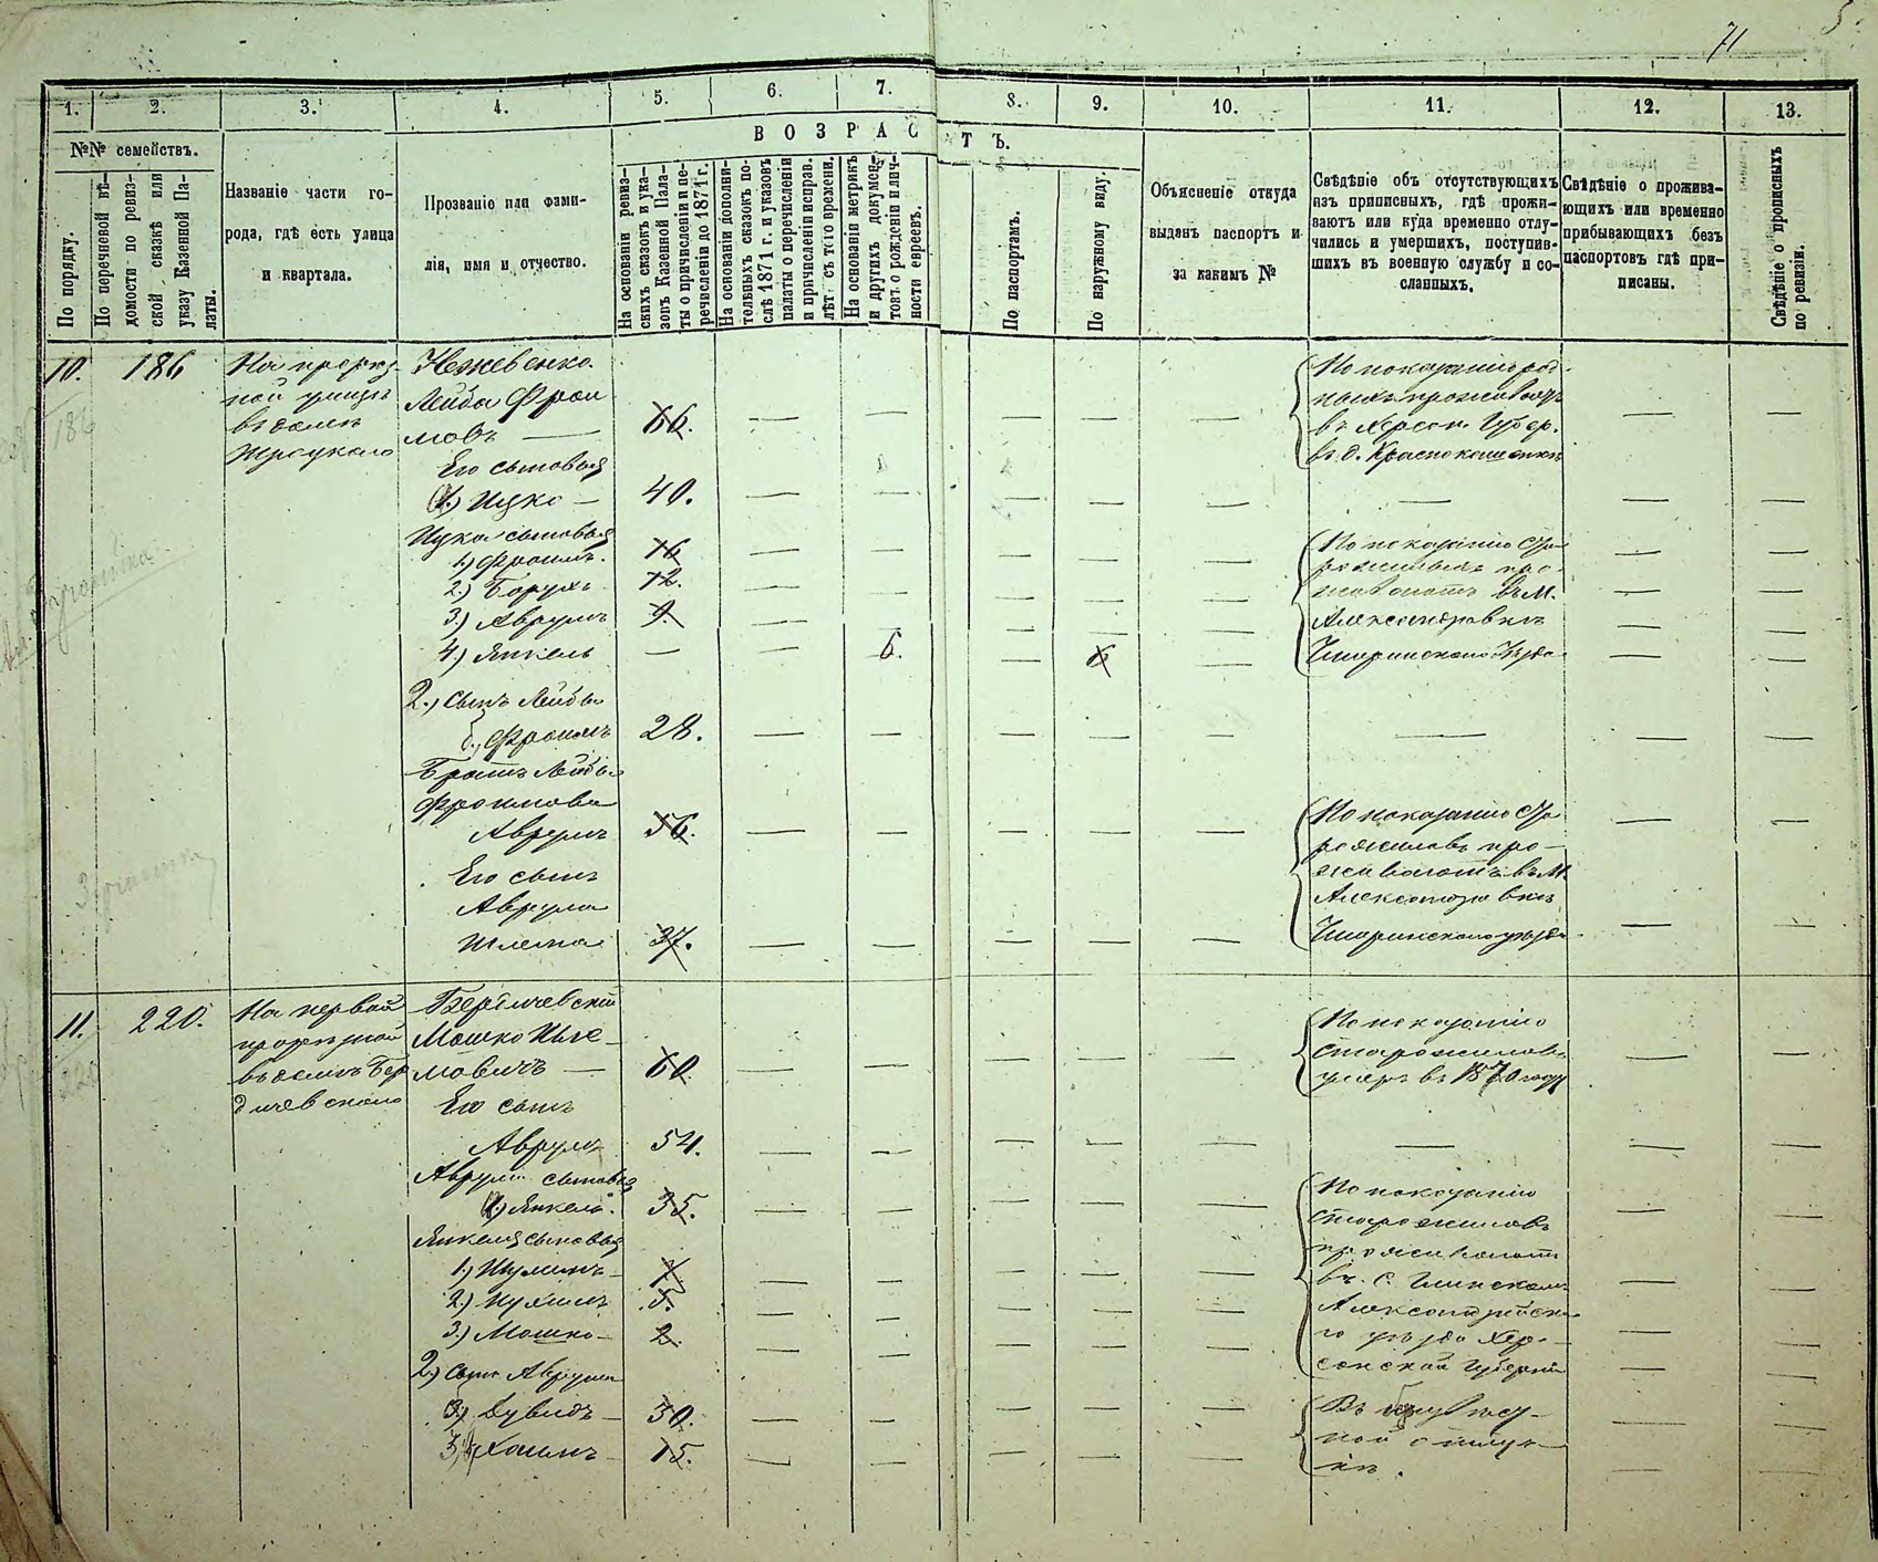 71
1. 2. 3. 4. 5. 6. 7. 8. 9. 10. 11. 12. 13.
№№ семействъ.
По порядку.
По перечневой вѣ-
домости по ревиз-
ской сказкѣ или
указу Казенной Па-
латы.
Названіе части го-
рода, гдѣ есть улица
и квартала.
Прозваніе или фами-
лія, имя и отчество.
ВОЗРАСТЪ.
На основаніи ревиз-
скихъ сказокъ и ука-
зовъ Казенной Пала-
ты о причисленіи и пе-
речисленіи до 1871 г.
На основаніи дополни-
тельныхъ сказокъ по-
слѣ 1871 г. и указовъ
палаты о перечисленіи
и причисленіи исправ.
лѣт. съ того времени.
На основаніи метрикъ
и другихъ докумен-
товъ о рожденіи и лич-
ности евреевъ.
По паспортамъ.
По наружному виду.
Объясненіе откуда
выданъ паспортъ и
за какимъ №
Свѣдѣніе объ отсутствующихъ
изъ приписныхъ, гдѣ прожи-
ваютъ или куда временно отлу-
чились и умершихъ, поступив-
шихъ въ военную службу и со-
сланныхъ.
Свѣдѣніе о прожива-
ющихъ или временно
прибывающихъ безъ
паспортовъ гдѣ при-
писаны.
Свѣдѣніе о прописныхъ
по ревизіи.
10. 186
186
На прорѣз-
ной улицѣ
въ домѣ
Нежевенко.
Лейба Фрои
мовъ — 66. — — — —
По показанію род-
ныхъ проживаетъ
въ Херсон. Губер.
въ д. Краснокаменкѣ
Его сыновья
1.) Ицко — 40. — — — — — — — —
Ицка сыновья
1.) Фроимъ. 16 — — — — —
2.) Борухъ 12. — — — — —
3.) Аврумъ 9. — — — — —
4.) Янкель — — 6. — 6 —
По показанію Ста
рожиловъ про-
живаютъ въ М.
Александровкѣ
Чигиринскаго Уѣзда
2.) Сынъ Лейбы
Фроимъ 28. — — — — — — — —
Братъ Лейбы
Фроимова
Аврумъ 56. — — — — —
Его сынъ
Аврума
Шлема 37. — — — — —
По показанію Ста
рожиловъ про-
живаютъ въ М.
Александровкѣ
Чигиринскаго уѣзда
11. 220.
220
На первой
прорѣзной
въ домѣ Бер
дичевскаго
Бердичевскій
Мошко
мовичъ — 60 — — — — —
По показанію
старожиловъ
умеръ въ 1870 году
Его сынъ
Аврумъ 54. — — — — — — — —
Аврума сыновья
1.) Янкель. 35. — — — — —
Янкеля сыновья
1.) — 7. — — — — —
2.) 5. — — — — —
3.) Мошко — 2. — — — — —
По показанію
старожиловъ
проживаютъ
въ с. Глинскомъ
Александрійска
го уѣзда Хер-
сонской Губерніи
2.) Сынъ Аврума
Дувидъ — 30. — — — — —
3) Хаимъ — 15. — — — — —
Въ безвѣст-
ной отлуч-
кѣ.